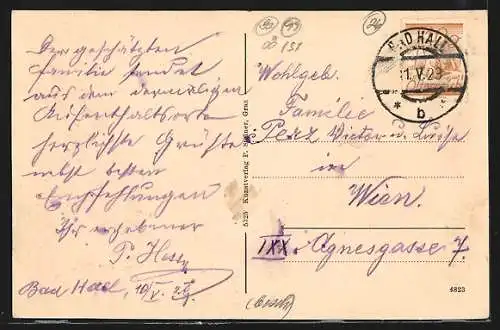 Der geschätzten
Familie sendet
aus dem derweiligen
Aufenthaltsorte
herzlichste Grüße
nebst besten
Empfehlungen
Ihr ergebener
P. Hess
Bad Hall, 10/V. 29
5725 Kunstverlag F. Graz
BAD HALL
11.V.29
* b
Wohlgeb.
Familie
Perz Victor u. Luise
in
Wien.
IXX. Agnesgasse 7.
4823